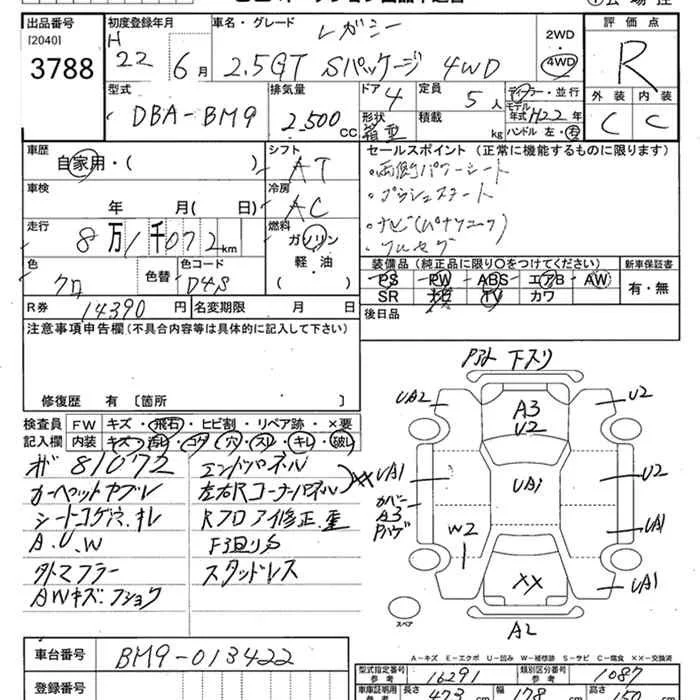 出品番号 [2040] 3788
初度登録年月 H 22 6月
車名・グレード レガシー 2.5GT Sパッケージ 4WD
2WD 4WD
評価点 R
外装 内装 C C
型式 DBA-BM9
排気量 2,500cc
ドア 4
形状 箱型
定員 5人
積載 kg
ディーラー・並行
モデル年式 H22年
ハンドル 左・右
車歴 自家用・( )
シフト AT
車検 年 月( 日)
冷房 AC
走行 8万1千072km
燃料 ガソリン 軽・油 ( )
色 クロ 色替
色コード D4S
R券 14390円
名変期限 月 日
セールスポイント(正常に機能するものに限ります)
・両側パワーシート
・プッシュスタート
・ナビ(パナソニック)
・フルセグ
装備品(純正品に限り○をつけてください)
PS PW ABS エアB AW
SR ナビ TV カワ
新車保証書 有・無
後日品
注意事項申告欄(不具合内容等は具体的に記入して下さい)
修復歴 有〔箇所 〕
検査員記入欄
FW キズ・飛石・ヒビ割・リペア跡・×要
内装 キズ・汚レ・コゲ・穴・スレ・キレ・破レ
メーター 81072
カーペットヤブレ
シートコゲ穴、キレ
A.U.W
外マフラー
AWキズ・フショク
エンドパネル
左右Rコーナーパネル XX
Rフロア修正、歪
下回りサビ
スタッドレス
下スリ
UA2
A3
U2
U2
UA1
UA1
U2
カバー
A3
W2
UA1
XX
UA1
A2
スペア
A-キズ E-エクボ U-凹み W-補修跡 S-サビ C-腐食 XX-交換済
車台番号 BM9-013422
登録番号
型式指定番号 参考 16291
類別区分番号 参考 1087
車庫証明用 参考 長さ 473cm 幅 178cm 高さ 150cm